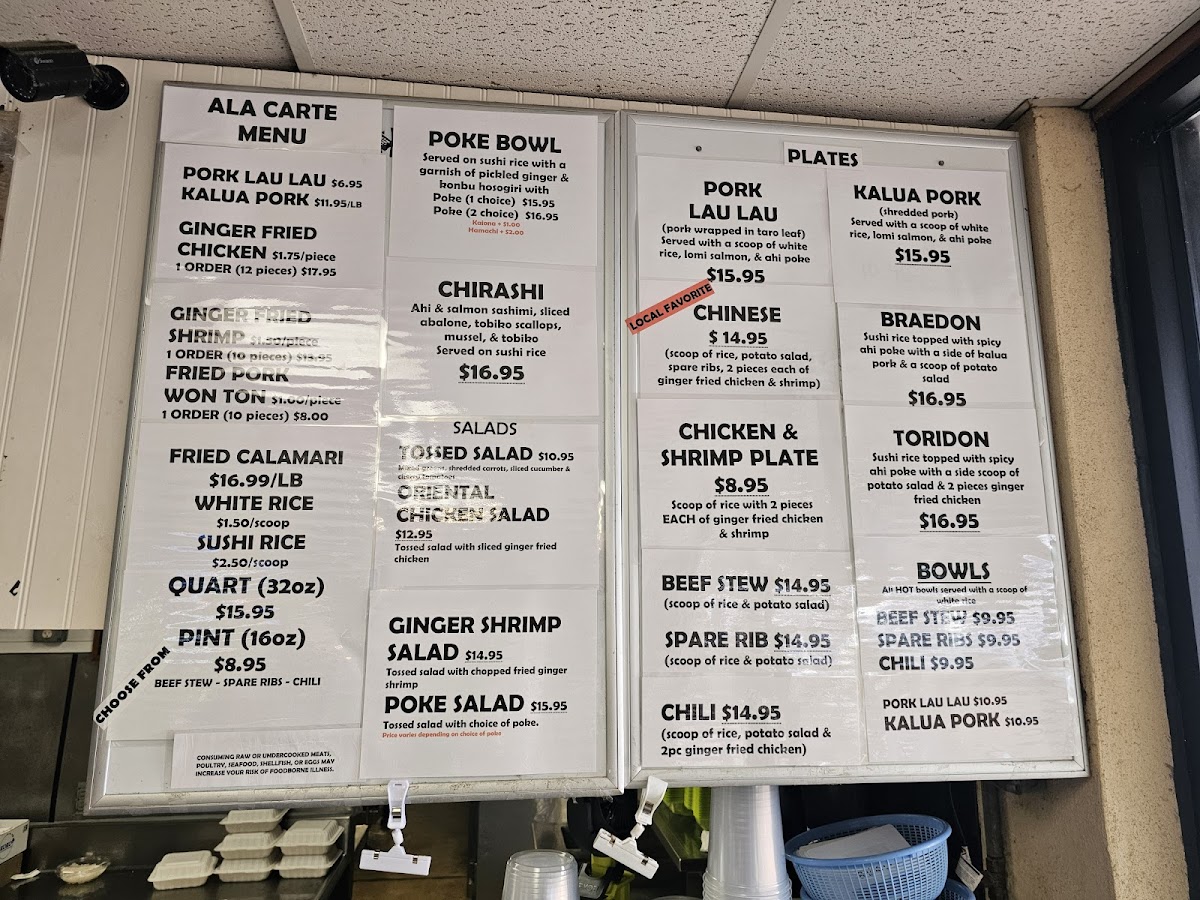 ALA CARTE
MENU
PORK LAU LAU $6.95
KALUA PORK $11.95/LB
GINGER FRIED
CHICKEN $1.75/piece
1 ORDER (12 pieces) $17.95
GINGER FRIED
SHRIMP $1.50/piece
1 ORDER (10 pieces) $13.95
FRIED PORK
WON TON $1.00/piece
1 ORDER (10 pieces) $8.00
FRIED CALAMARI
$16.99/LB
WHITE RICE
$1.50/scoop
SUSHI RICE
$2.50/scoop
QUART (32oz)
$15.95
PINT (16oz)
$8.95
CHOOSE FROM
BEEF STEW - SPARE RIBS - CHILI
CONSUMING RAW OR UNDERCOOKED MEATS,
POULTRY, SEAFOOD, SHELLFISH, OR EGGS MAY
INCREASE YOUR RISK OF FOODBORNE ILLNESS.
POKE BOWL
Served on sushi rice with a
garnish of pickled ginger &
konbu hosogiri with
Poke (1 choice) $15.95
Poke (2 choice) $16.95
Kaiona + $1.00
Hamachi + $2.00
CHIRASHI
Ahi & salmon sashimi, sliced
abalone, tobiko scallops,
mussel, & tobiko
Served on sushi rice
$16.95
SALADS
TOSSED SALAD $10.95
Mixed greens, shredded carrots, sliced cucumber &
cherry tomatoes
ORIENTAL
CHICKEN SALAD
$12.95
Tossed salad with sliced ginger fried
chicken
GINGER SHRIMP
SALAD $14.95
Tossed salad with chopped fried ginger
shrimp
POKE SALAD $15.95
Tossed salad with choice of poke.
Price varies depending on choice of poke
PLATES
PORK
LAU LAU
(pork wrapped in taro leaf)
Served with a scoop of white
rice, lomi salmon, & ahi poke
$15.95
LOCAL FAVORITE
CHINESE
$ 14.95
(scoop of rice, potato salad,
spare ribs, 2 pieces each of
ginger fried chicken & shrimp)
CHICKEN &
SHRIMP PLATE
$8.95
Scoop of rice with 2 pieces
EACH of ginger fried chicken
& shrimp
BEEF STEW $14.95
(scoop of rice & potato salad)
SPARE RIB $14.95
(scoop of rice & potato salad)
CHILI $14.95
(scoop of rice, potato salad &
2pc ginger fried chicken)
KALUA PORK
(shredded pork)
Served with a scoop of white
rice, lomi salmon, & ahi poke
$15.95
BRAEDON
Sushi rice topped with spicy
ahi poke with a side of kalua
pork & a scoop of potato
salad
$16.95
TORIDON
Sushi rice topped with spicy
ahi poke with a side scoop of
potato salad & 2 pieces ginger
fried chicken
$16.95
BOWLS
All HOT bowls served with a scoop of
white rice
BEEF STEW $9.95
SPARE RIBS $9.95
CHILI $9.95
PORK LAU LAU $10.95
KALUA PORK $10.95